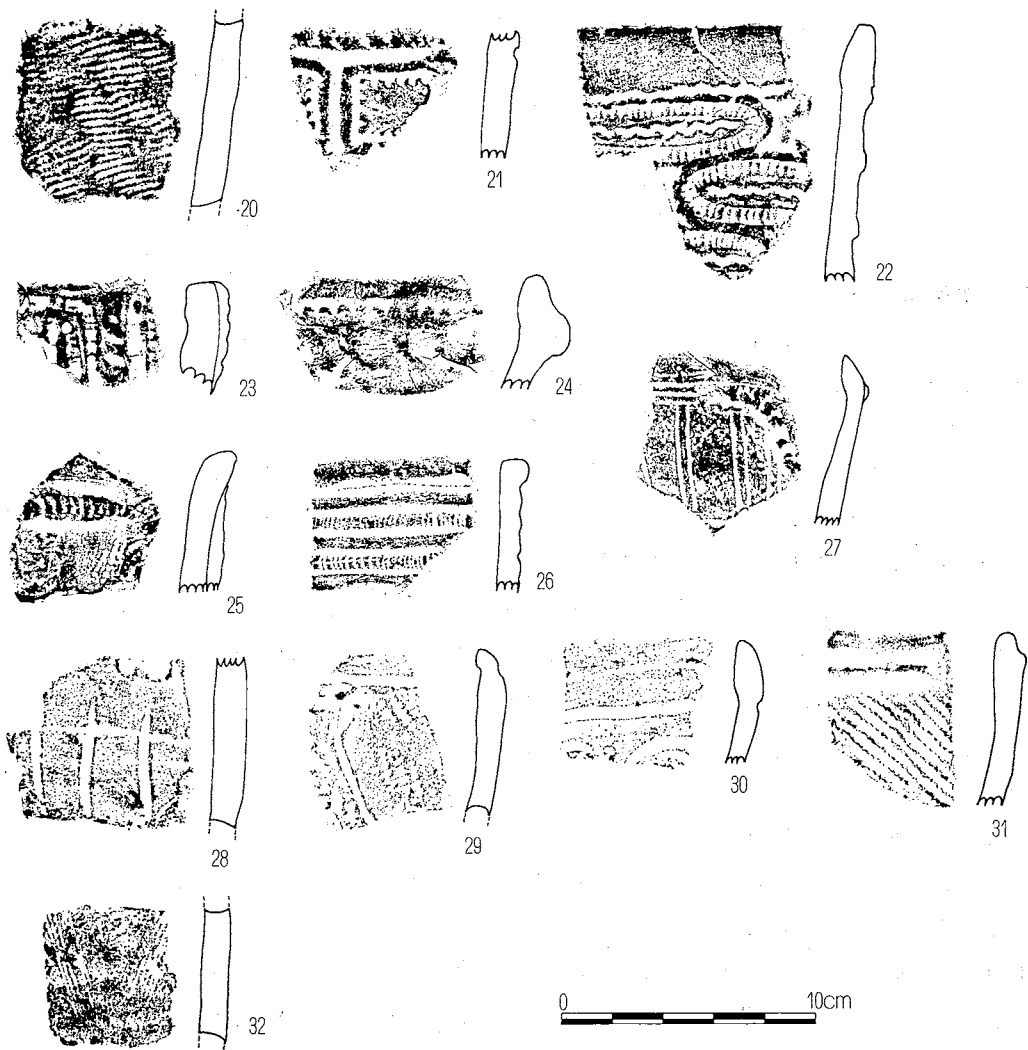 20
21
22
23
24
25
26
27
28
29
30
31
32
0 10cm